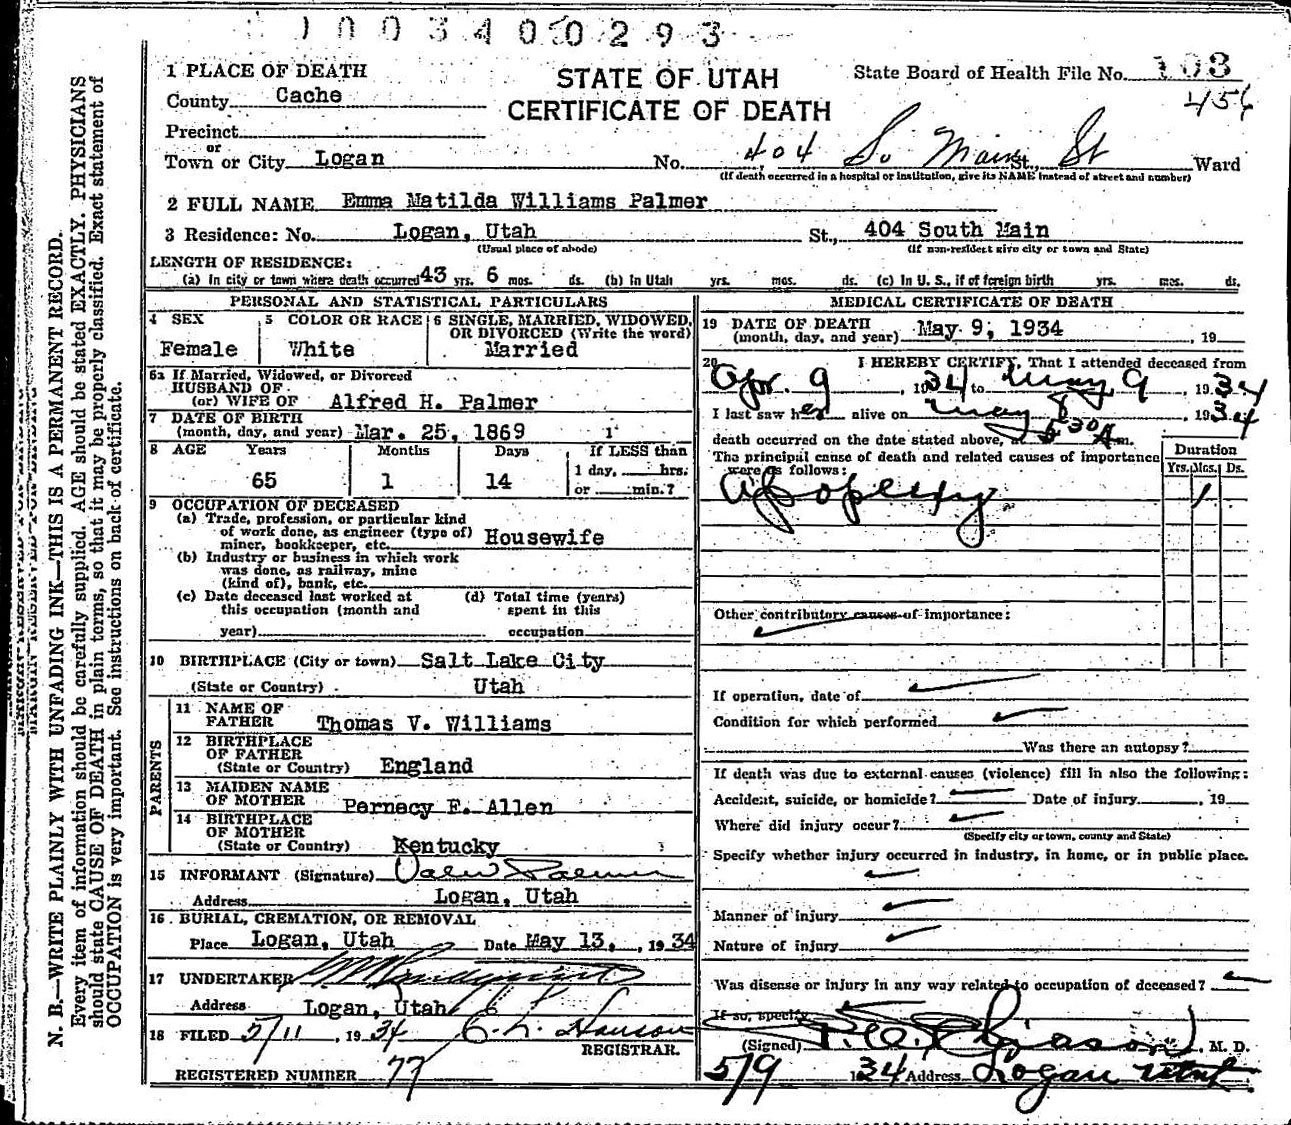 1003400293
1 PLACE OF DEATH
STATE OF UTAH
CERTIFICATE OF DEATH
State Board of Health File No. 103
456
County Cache
Precinct
or
Town or City Logan No. 404 So Main St St., Ward
(If death occurred in a hospital or institution, give its NAME instead of street and number)
2 FULL NAME Emma Matilda Williams Palmer
3 Residence: No. Logan, Utah St., 404 South Main
(Usual place of abode) (If non-resident give city or town and State)
LENGTH OF RESIDENCE:
(a) In city or town where death occurred 43 yrs. 6 mos. ds. (b) In Utah yrs. mos. ds. (c) In U. S., if of foreign birth yrs. mos. ds.
PERSONAL AND STATISTICAL PARTICULARS
4 SEX Female
5 COLOR OR RACE White
6 SINGLE, MARRIED, WIDOWED,
OR DIVORCED (Write the word)
Married
6a If Married, Widowed, or Divorced
HUSBAND OF
(or) WIFE OF Alfred H. Palmer
7 DATE OF BIRTH
(month, day, and year) Mar. 25, 1869
8 AGE Years Months Days If LESS than
65 1 14 1 day, hrs.
or min.?
9 OCCUPATION OF DECEASED
(a) Trade, profession, or particular kind
of work done, as engineer (type of)
miner, bookkeeper, etc. Housewife
(b) Industry or business in which work
was done, as railway, mine
(kind of), bank, etc.
(c) Date deceased last worked at
this occupation (month and
year)
(d) Total time (years)
spent in this
occupation
10 BIRTHPLACE (City or town) Salt Lake City
(State or Country) Utah
PARENTS
11 NAME OF
FATHER Thomas V. Williams
12 BIRTHPLACE
OF FATHER
(State or Country) England
13 MAIDEN NAME
OF MOTHER Pernecy E. Allen
14 BIRTHPLACE
OF MOTHER
(State or Country) Kentucky
15 INFORMANT (Signature) Palmer
Address Logan, Utah
16 BURIAL, CREMATION, OR REMOVAL
Place Logan, Utah Date May 13, , 1934
17 UNDERTAKER
Address Logan, Utah
18 FILED 5/11 , 1934 Hanson
REGISTRAR.
REGISTERED NUMBER 77
MEDICAL CERTIFICATE OF DEATH
19 DATE OF DEATH
(month, day, and year) May 9, 1934 , 19
20 I HEREBY CERTIFY, That I attended deceased from
Apr. 9 , 1934 to May 9 , 1934
I last saw her alive on May 8 , 1934
death occurred on the date stated above, at 5 30 A m.
The principal cause of death and related causes of importance
were as follows:
Duration
Yrs. Mos. Ds.
Apoplexy 1
Other contributory causes of importance:
If operation, date of
Condition for which performed
Was there an autopsy?
If death was due to external causes (violence) fill in also the following:
Accident, suicide, or homicide? Date of injury , 19
Where did injury occur?
(Specify city or town, county and State)
Specify whether injury occurred in industry, in home, or in public place.
Manner of injury
Nature of injury
Was disease or injury in any way related to occupation of deceased?
If so, specify
(Signed) , M. D.
5/9 1934 Address Logan Utah
N. B.—WRITE PLAINLY WITH UNFADING INK—THIS IS A PERMANENT RECORD.
Every item of information should be carefully supplied. AGE should be stated EXACTLY. PHYSICIANS
should state CAUSE OF DEATH in plain terms, so that it may be properly classified. Exact statement of
OCCUPATION is very important. See instructions on back of certificate.